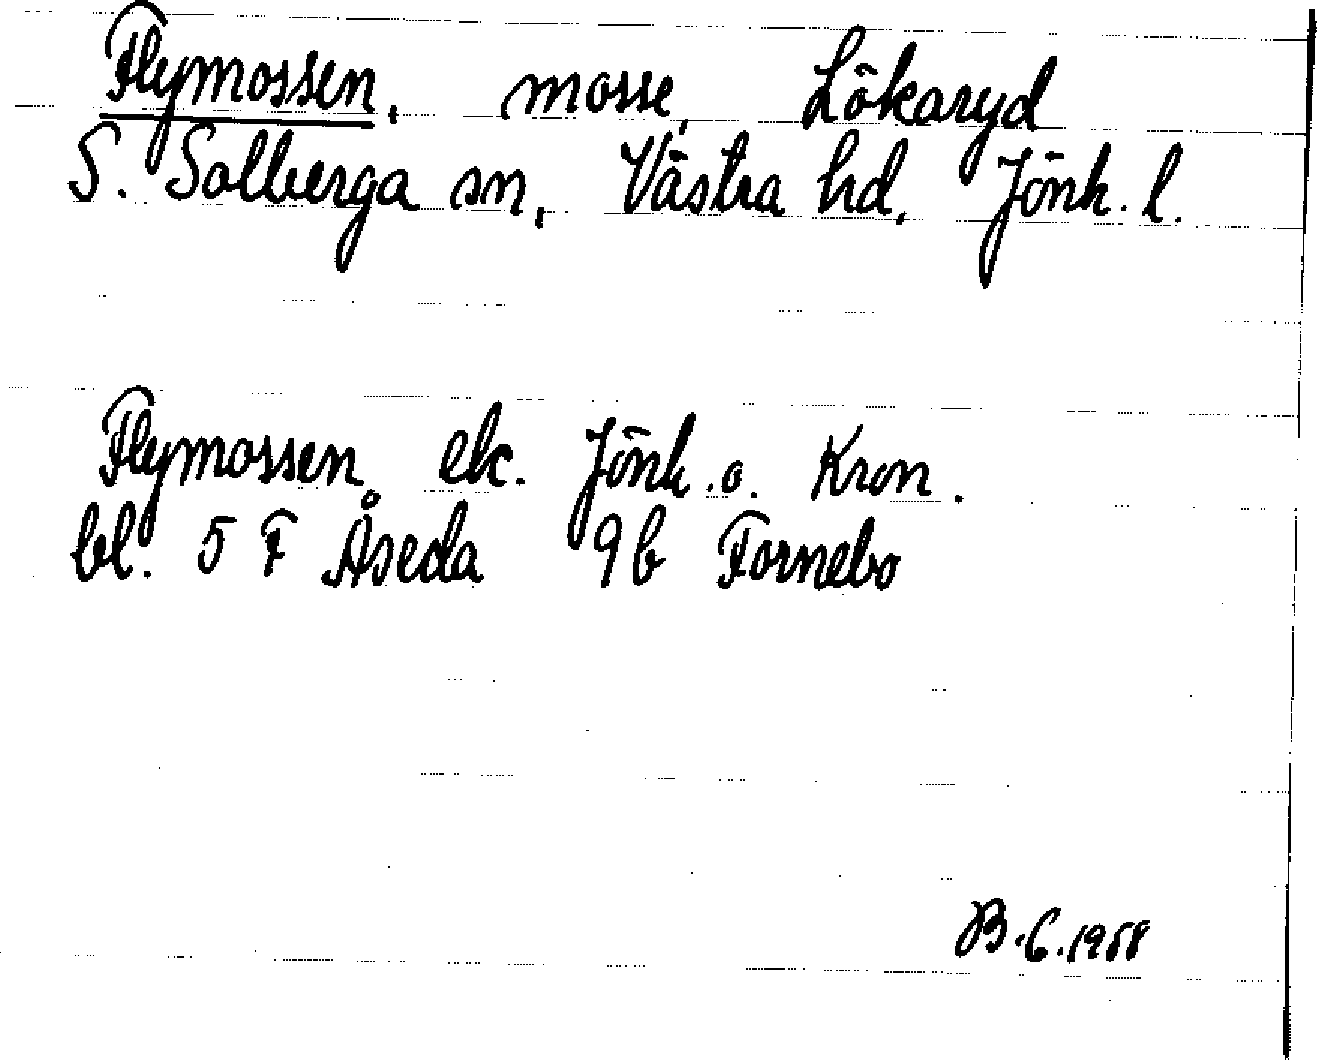 Flymossen, mosse, Lökaryd
S. Solberga sn, Västra hd, Jönk. l.
Flymossen ek. Jönk. o. Kron.
bl. 5 F Åseda 9b Fornebo
B.C. 1958